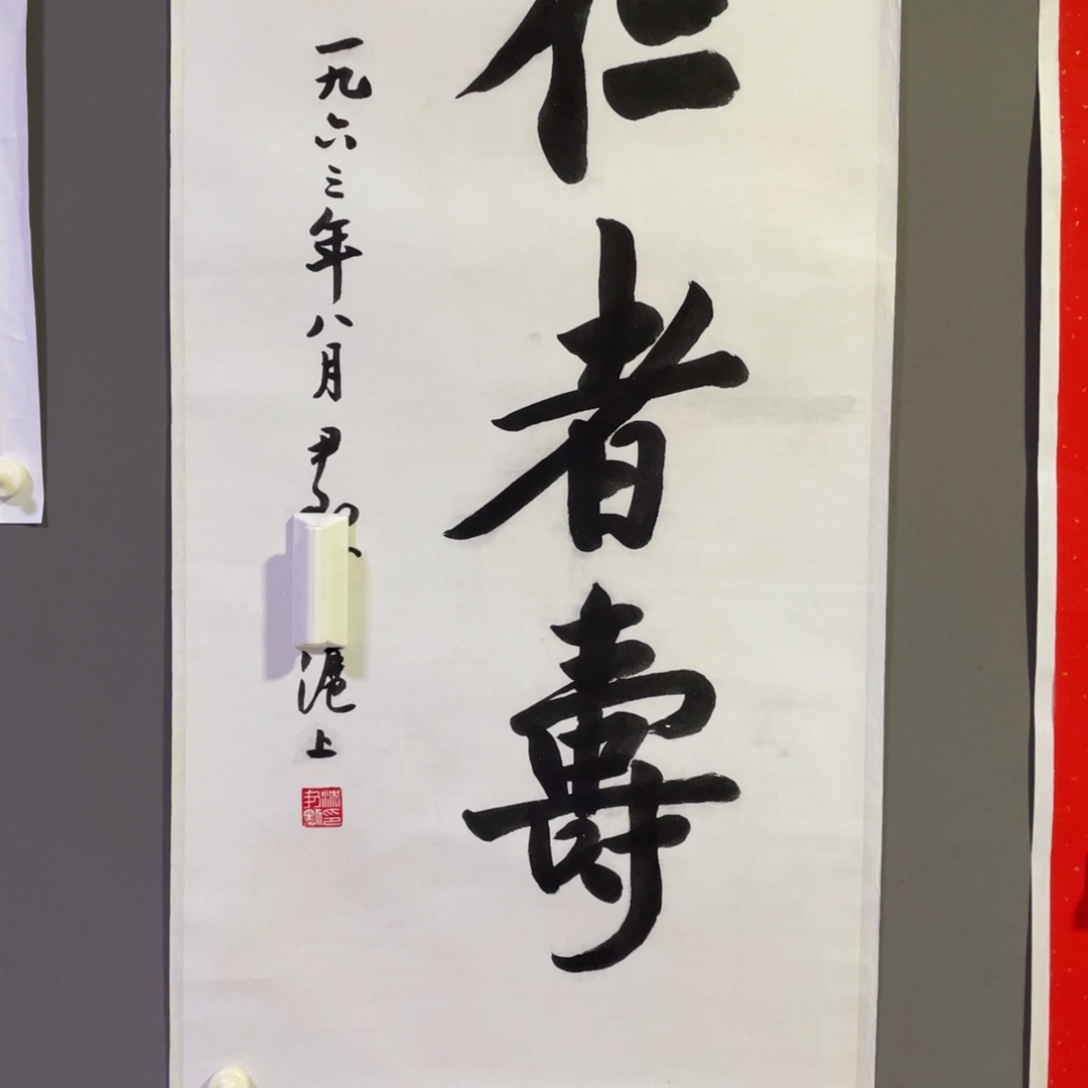 仁者壽
一九六三年八月尹
滬上